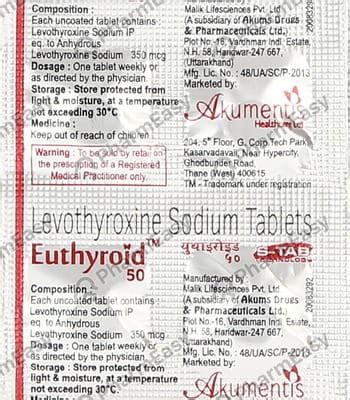 Composition :
Each uncoated tablet contains :
Levothyroxine Sodium IP
eq. to Anhydrous
Levothyroxine Sodium 350 mcg
Dosage : One tablet weekly or
as directed by the physician.
Storage : Store protected from
light & moisture, at a temperature
not exceeding 30°C
Medicine :
Keep out of reach of children
Warning : To be sold by retail on
the prescription of a Registered
Medical Practitioner only.
Malik Lifesciences Pvt. Ltd
(A subsidiary of Akums Drugs
& Pharmaceuticals Ltd.)
Plot No.-16, Vardhman Indl. Estate,
N.H. 58, Haridwar-247 667,
(Uttarakhand)
Mfg. Lic. No. : 48/UA/SC/P-2013
Marketed by:
Akumentis
Healthcare Ltd
204, 5th Floor, G. Corp.Tech Park
Kasarvadavali, Near Hypercity,
Ghodbunder Road,
Thane (West) 400615
TM - Trademark under registration
Levothyroxine Sodium Tablets
Euthyroid™
50
युथाइरोइड
५०
TECHNOLOGY
Composition :
Each uncoated tablet contains :
Levothyroxine Sodium IP
eq. to Anhydrous
Levothyroxine Sodium 350 mcg
Dosage : One tablet weekly or
as directed by the physician.
Storage : Store protected from
light & moisture, at a temperature
not exceeding 30°C
Manufactured by :
Malik Lifesciences Pvt. Ltd
(A subsidiary of Akums Drugs
& Pharmaceuticals Ltd.)
Plot No.-16, Vardhman Indl. Estate,
N.H. 58, Haridwar-247 667,
(Uttarakhand)
Mfg. Lic. No. : 48/UA/SC/P-2013
Marketed by:
Akumentis